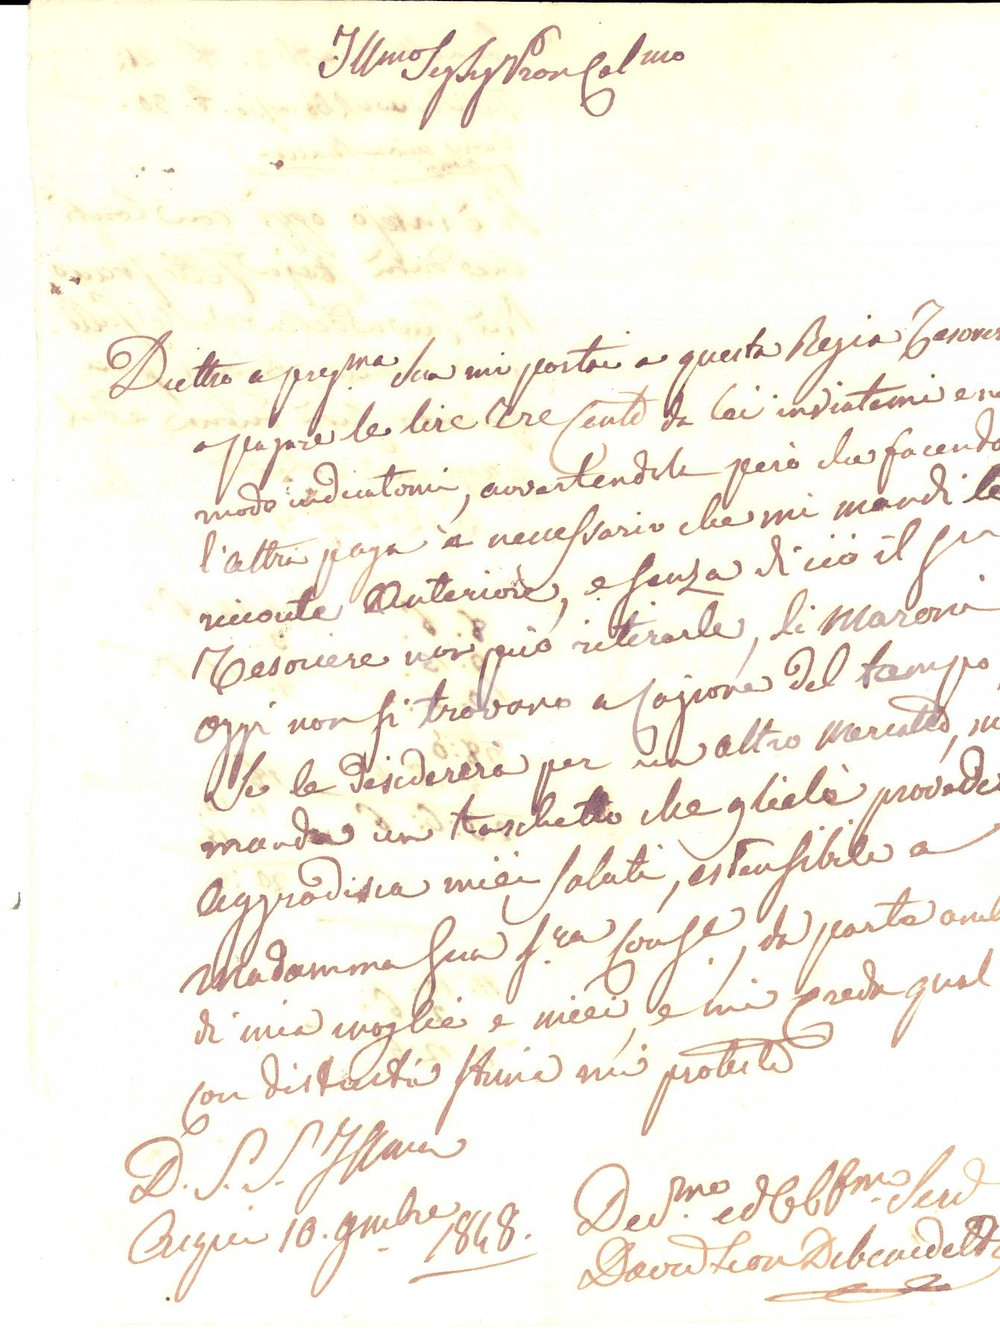 Illmo Sig Sig Pron Colmo
Dietro a pregma Sua mi portai a questa Regia Tesorer
a pagare le lire Tre Cento da lei inviatemi e ne
modo indicatomi, avvertendola però che facendo
l'altra paga è necessario che mi mandi le
ricevute Anteriore, e senza di ciò il
Tesoriere non può ritirarle, li Maroni
oggi non si trovano a Cagione del tempo,
Se le desidererà per un altro Mercatto, mi
manda un taschetto che glielè provede
Aggradisca miei saluti, ostensibile a
Madamma Sua Sra Conse, da parte anch
di mia moglie e miei, e mi creda qual
con distinta stima mi protesto
D. S. S. Illma
10. 9mbre 1848.
Dedmo ed Obbmo Servo
David Leon Debenedetti